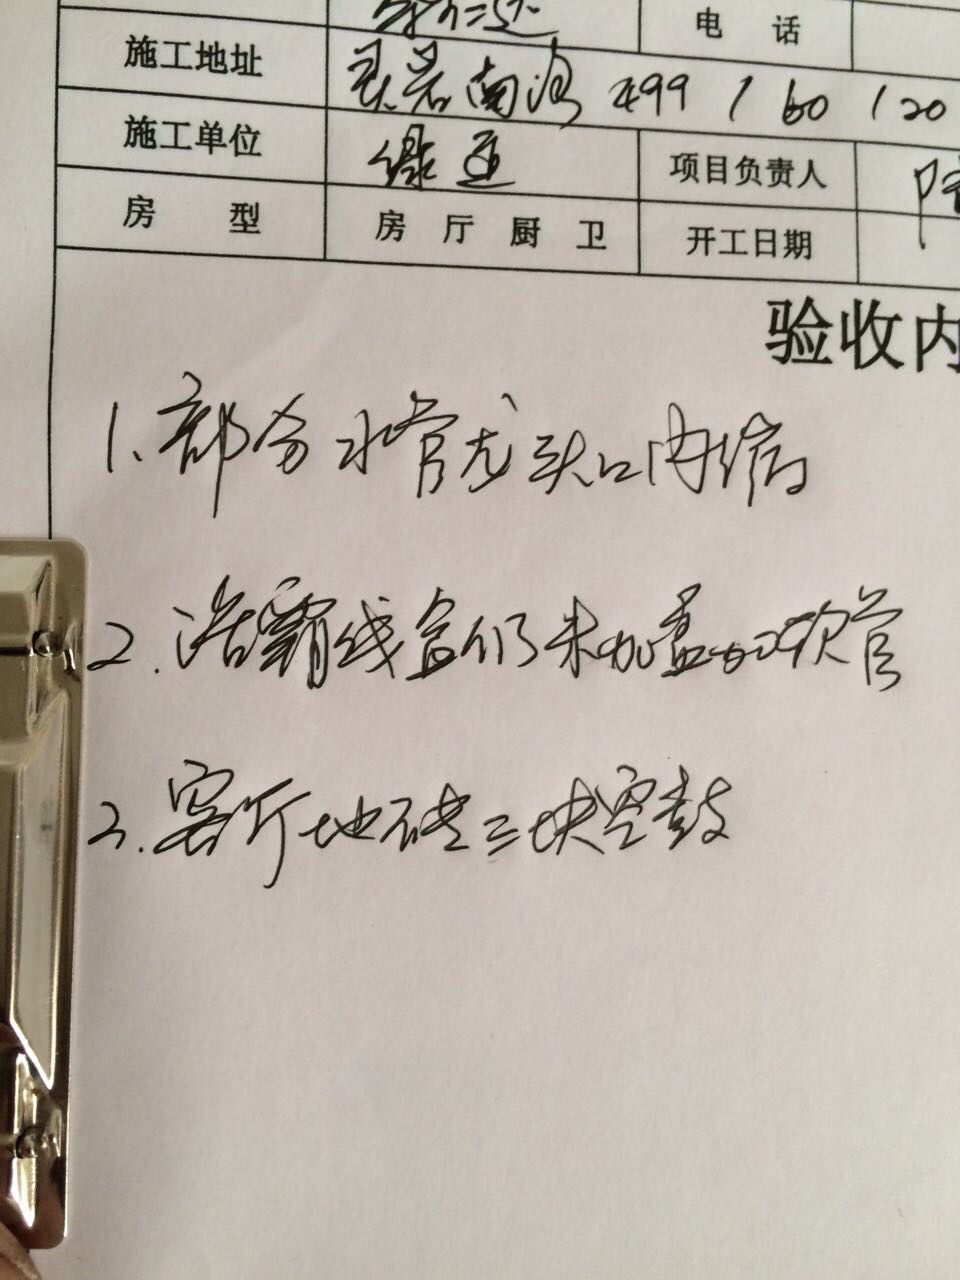 电 话
施工地址 灵岩南路 499 / 60 / 20
施工单位 绿适 项目负责人
房 型 房 厅 厨 卫 开工日期
验收内
1、部分水管龙头口内缩
2、浴霸线盒仍未加盖加软管
3、客厅地砖三块空鼓